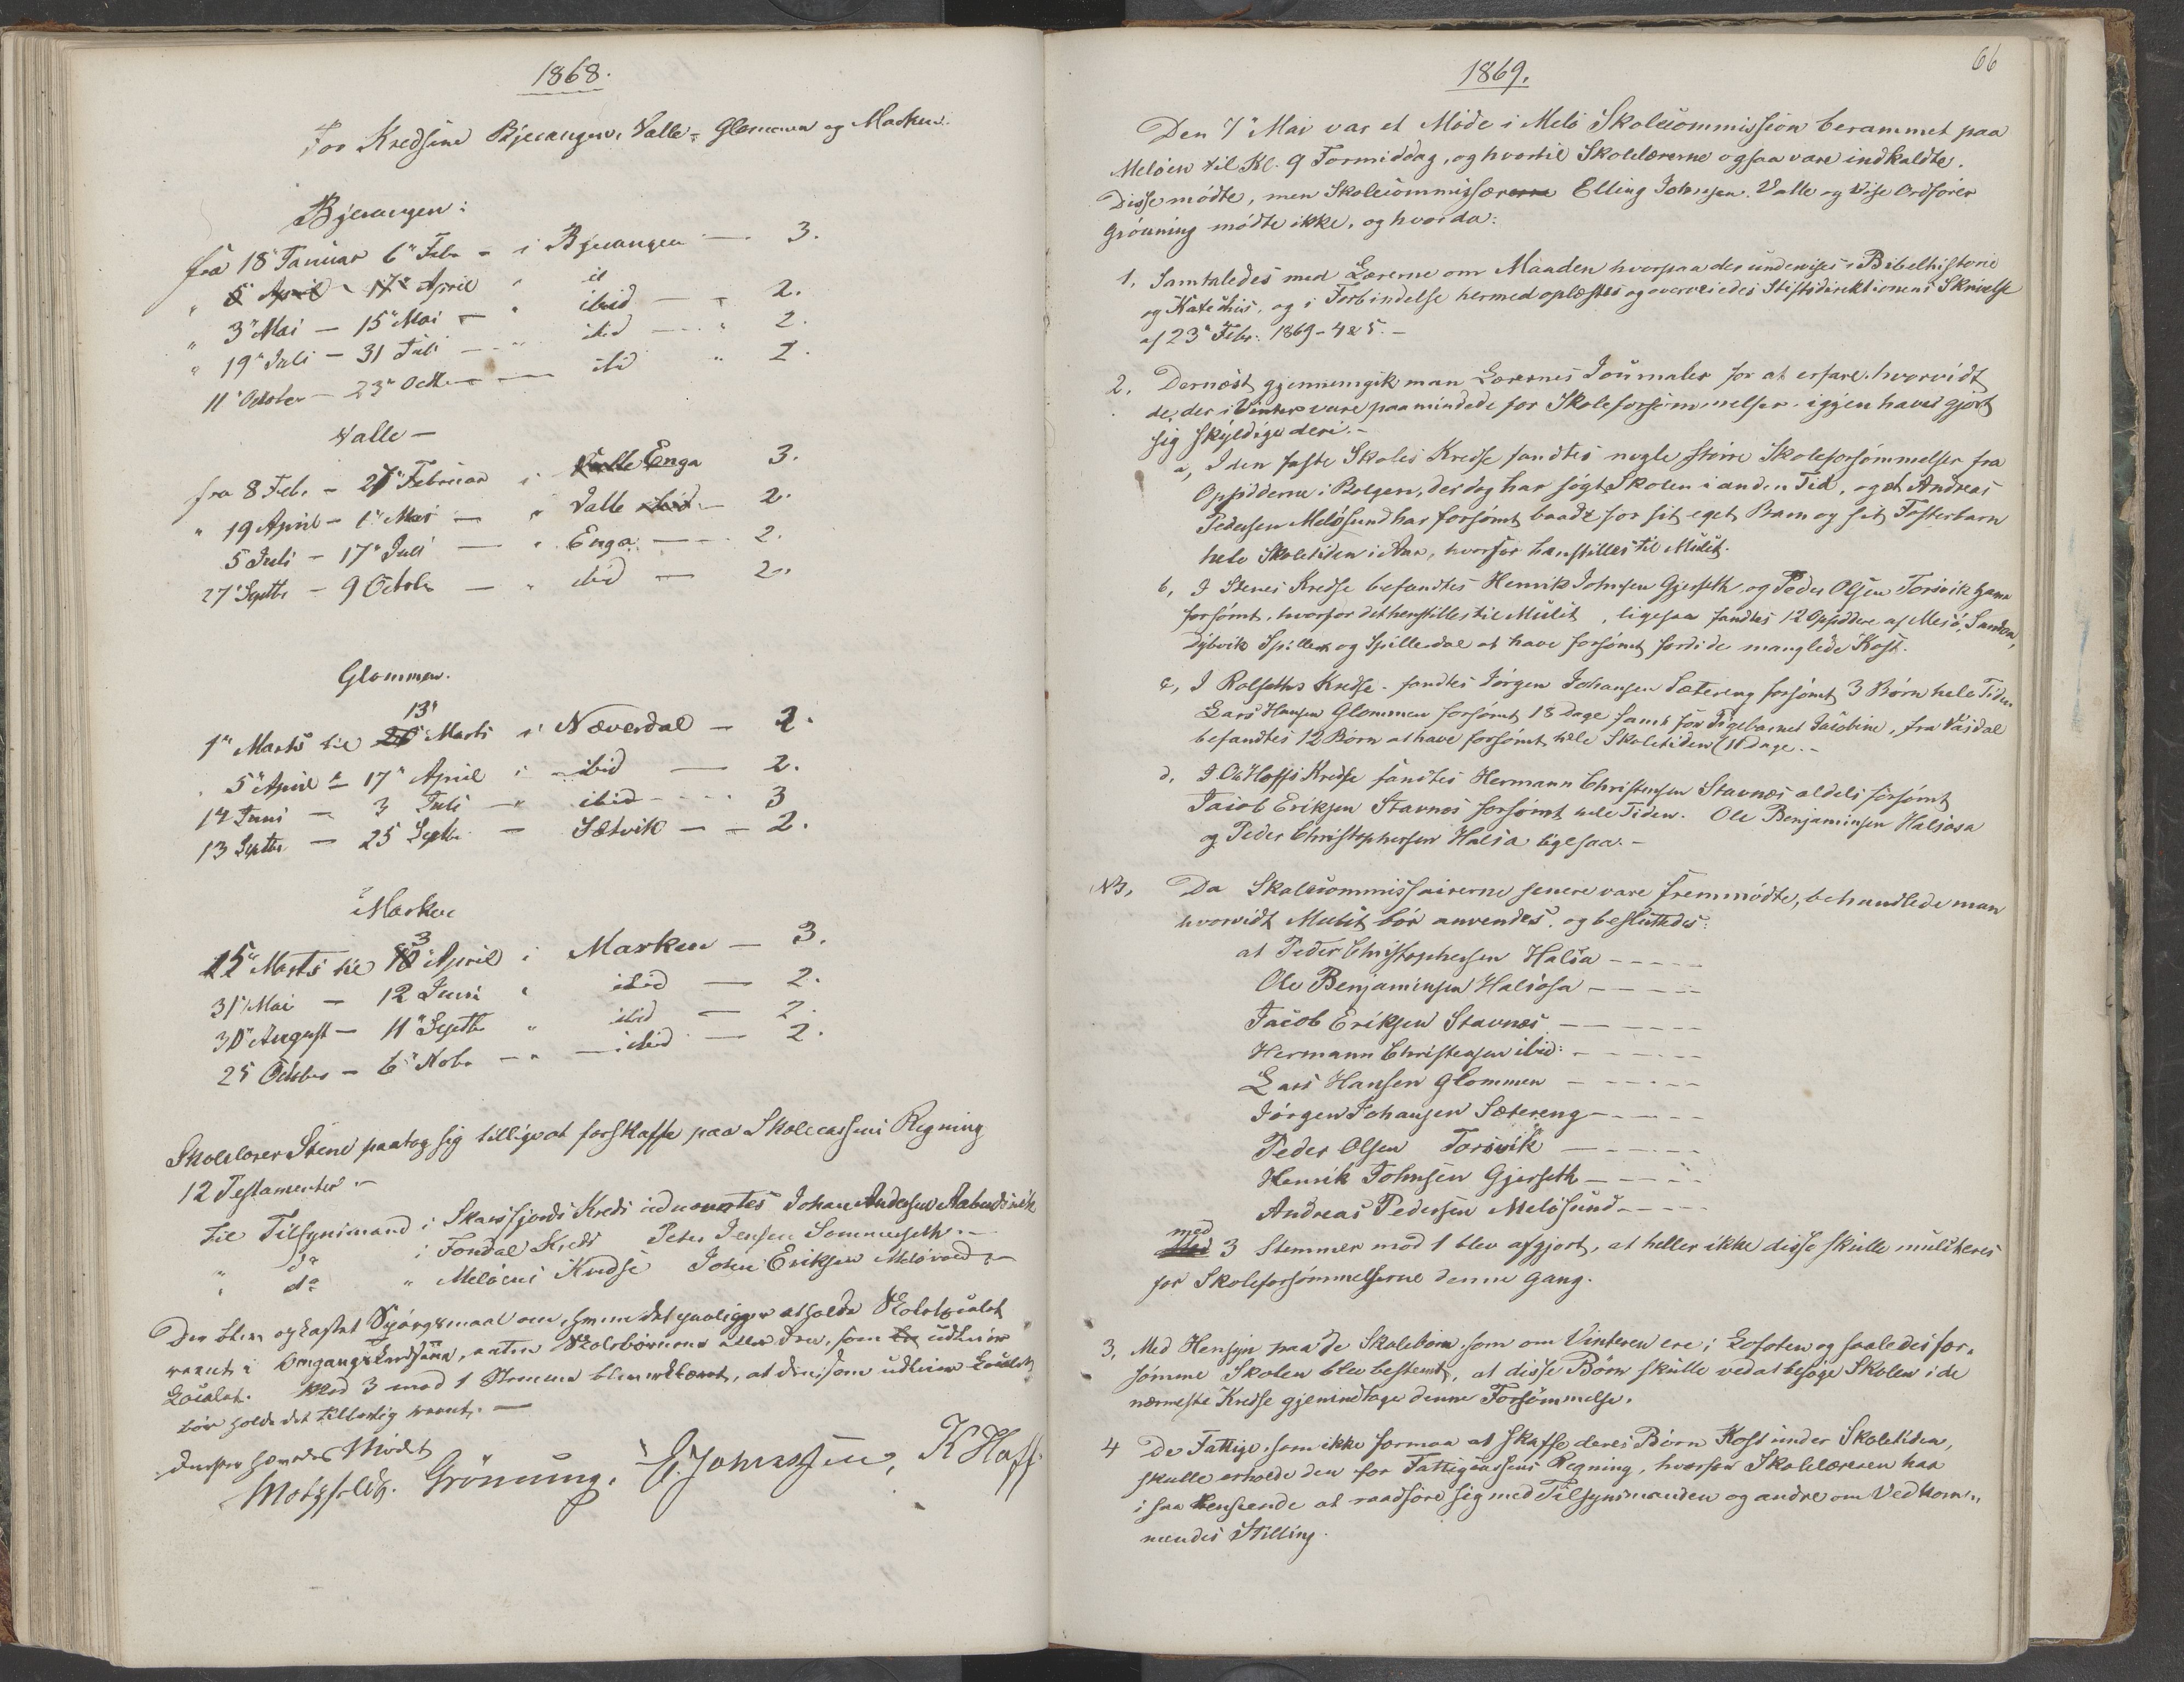 1868.
For Kredsene Bjerangen, Valle, Glommen og Marken.
Bjerangen:
fra 18" Januar 6" Febr - i Bjerangen - 3.
" 5" April - 17" April " id
" 3" Mai - 15" Mai - " ibid - " 2.
" 19" Juli - 31 Juli - " ibid - " 2.
11" October - 23" Octbr - ibid " 2.
Valle -
fra 8 Feb. - 27" Februar i Valle Enga 3.
" 19 April - 1" Mai - " Valle ibid - 2.
5 Juli - 17" Juli - " Enga - 2.
27" Septbr - 9 Octobr - " ibid - 2.
Glommen.
13"
1" Marts til 20" Marts i Næverdal - 2.
5" April - 17" April i ibid - 2.
14 Juni - 3 Juli - " ibid - 3
13 Septbr - 25 Septbr - Sætvik - - 2.
Marken
3
15" Marts til 10" April i Marken - 3.
31" Mai - 12 Juni " ibid - 2.
30" August - 11" Septbr " ibid - 2.
25 October - 6" Nobr - " - ibid - 2.
Skolelærer Stene paatog sig tillige at forskaffe paa Skolecassens Regning
12 Testamenter. -
til Tilsynsmand i Skarsfjords Kreds udnævntes Johan Andersen
" do i Fondal Kreds Peter Jensen Sommerseth. -
" do " Meløens Kredse Johan Eriksen Meløvær. -
Der blev opkastet Spørgsmaal om, hvem det paaligger at holde Skolelocalet
varmt i Omgangskredsene, enten Skolebørnene eller den, som udleier
Localet. Med 3 mod 1 Stemme blev, at den som udleier Localet
bør holde det tilbørlig varmt. -
Derpaa hævedes Mødet
Motzfeldt. Grønning. E. Johnssen, K Hoff.
66
1869.
Den 7" Mai var et Møde i Melø Skolecommission berammet paa
Meløen til Kl. 9 Formiddag, og hvortil Skolelærerne ogsaa vare indkaldte.
Disse mødte, men Skolecommissærerne Elling Johnsen Valle og Vise Ordfører
Grønning mødte ikke, og hvorda:
1, Samtaledes med Lærerne om Maaden hvorpaa der undervises i Bibelhistorie
og Katechis. og i Forbindelse hermed oplæstes og overveiedes Stiftsdirektionens Skrivelse
af 23" Febr. 1869 - 425. -
2, Dernæst gjennemgik man Lærernes Journaler for at erfare, hvorvidt
de, der i Vinter vare paamindede for Skoleforsømmelser igjen havde gjort
sig skyldige deri. -
a, I den faste Skoles Kredse fandtes nogle større Skoleforsømmelser fra
Opsidderne i Bolgen, der dog har søgt Skolen i anden Tid, og at Andreas
Pedersen Meløsund har forsømt baade for sit eget Barn og sit Fosterbarn
hele Skoletiden i Aar, hvorfor henstilles til Mulct.
b, I Stenes Kredse befandtes Henrik Johnsen Gjerseth, og Peder Olsen Torsvik have
forsømt, hvorfor det henstilles til Mulct, ligesaa fandtes 12 Opsiddere af Mesø, Sandva,
Dybvik Spilder og Spilderdal at have forsømt fordi de manglede Kost.
c, I Rolseths Kredse fandtes Jørgen Johansen Sætereng forsømt 3 Børn hele Tiden
Lars Hansen Glommen forsømt 18 Dage samt for Pigebarnet Jacobine, fra Vasdal
befandtes 12 Børn at have forsømt hele Skoletiden 11 dage. -
d, I Ol. Hoffs Kredse fandtes Hermann Christensen Stavnæs aldeles forsømt
Jacob Eriksen Stavnes forsømt hele Tiden. Ole Benjaminsen Halsosa
og Peder Christophersen Halsa ligesaa. -
NB, Da Skolecommissairerne senere vare fremmødte, behandlede man
hvorvidt Mulct bør anvendes, og besluttedes:
at Peder Christophersen Halsa - - - - -
Ole Benjaminsen Halsosa - - - - -
Jacob Eriksen Stavnæs - - - - -
Hermann Christensen ibid: - - - - -
Lars Hansen Glommen - - - - -
Jørgen Johansen Sætereng - - - - -
Peder Olsen Torsvik - - - - -
Henrik Johnsen Gjerseth - - - - -
Andreas Pedersen Meløsund - - - - -
med
Med 3 Stemmer mod 1 blev afgjort, at heller ikke disse skulle mulcteres
for Skoleforsømmelserne denne Gang.
3, Med Hensyn paa de Skolebørn, som om Vinteren ere i Lofoten og saaledes for-
sømme Skolen blev bestemt, at disse Børn skulle ved at besøge Skolen i de
nærmeste Kredse gjenindtage denne Forsømmelse.
4 De Fattige, som ikke formaa at skaffe deres Børn Kost under Skoletiden,
skulle erholde den for Fattigcassens Regning, hvorfor Skolelæreren har
i saa Henseende at raadføre sig med Tilsynsmanden og andre om Vedkom-
mendes Stilling.